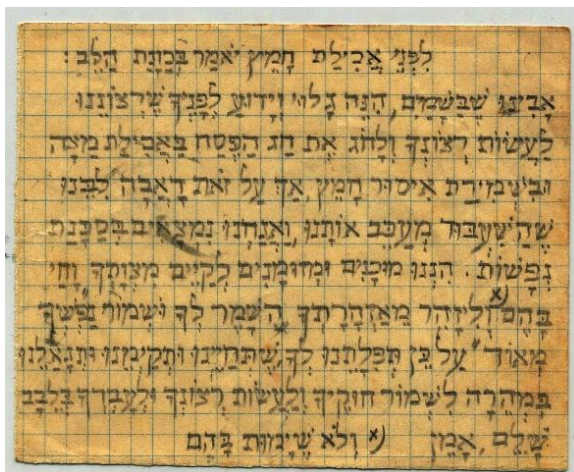 לִפְנֵי אֲכִילַת חָמֵץ יֹאמַר בְּכַוָּנַת הַלֵּב :
אָבִינוּ שֶׁבַּשָּׁמַיִם, הִנֵּה גָלוּי וְיָדוּעַ לְפָנֶיךָ שֶׁרְצוֹנֵנוּ
לַעֲשׂוֹת רְצוֹנְךָ וְלָחֹג אֶת חַג הַפֶּסַח בַּאֲכִילַת מַצָּה
וּבִשְׁמִירַת אִיסוּר חָמֵץ, אַךְ עַל זֹאת דָּאֲבָה לִבֵּנוּ
שֶׁהַשִּׁעְבּוּד מְעַכֵּב אוֹתָנוּ, וַאֲנַחְנוּ נִמְצָאִים בְּסַכָּנַת
נְפָשׁוֹת. הִנְנוּ מוּכָנִים וּמְזוּמָּנִים לְקַיֵּים מִצְוָתְךָ "וָחַי
בָּהֶם" x) וְלִיזָּהֵר מֵאַזְהָרָתְךָ "הִשָּׁמֶר לְךָ וּשְׁמוֹר נַפְשְׁךָ
מְאוֹד" עַל כֵּן תְּפִלָּתֵנוּ לְךָ שֶׁתְּחַיֵּינוּ וּתְקַיְּמֵנוּ וְתִגְאָלֵנוּ
בִּמְהֵרָה לִשְׁמוֹר חוּקֶיךָ וְלַעֲשׂוֹת רְצוֹנְךָ וּלְעָבְדְּךָ בְּלֵבָב
שָׁלֵם, אָמֵן x) וְלֹא שֶׁיָּמוּת בָּהֶם